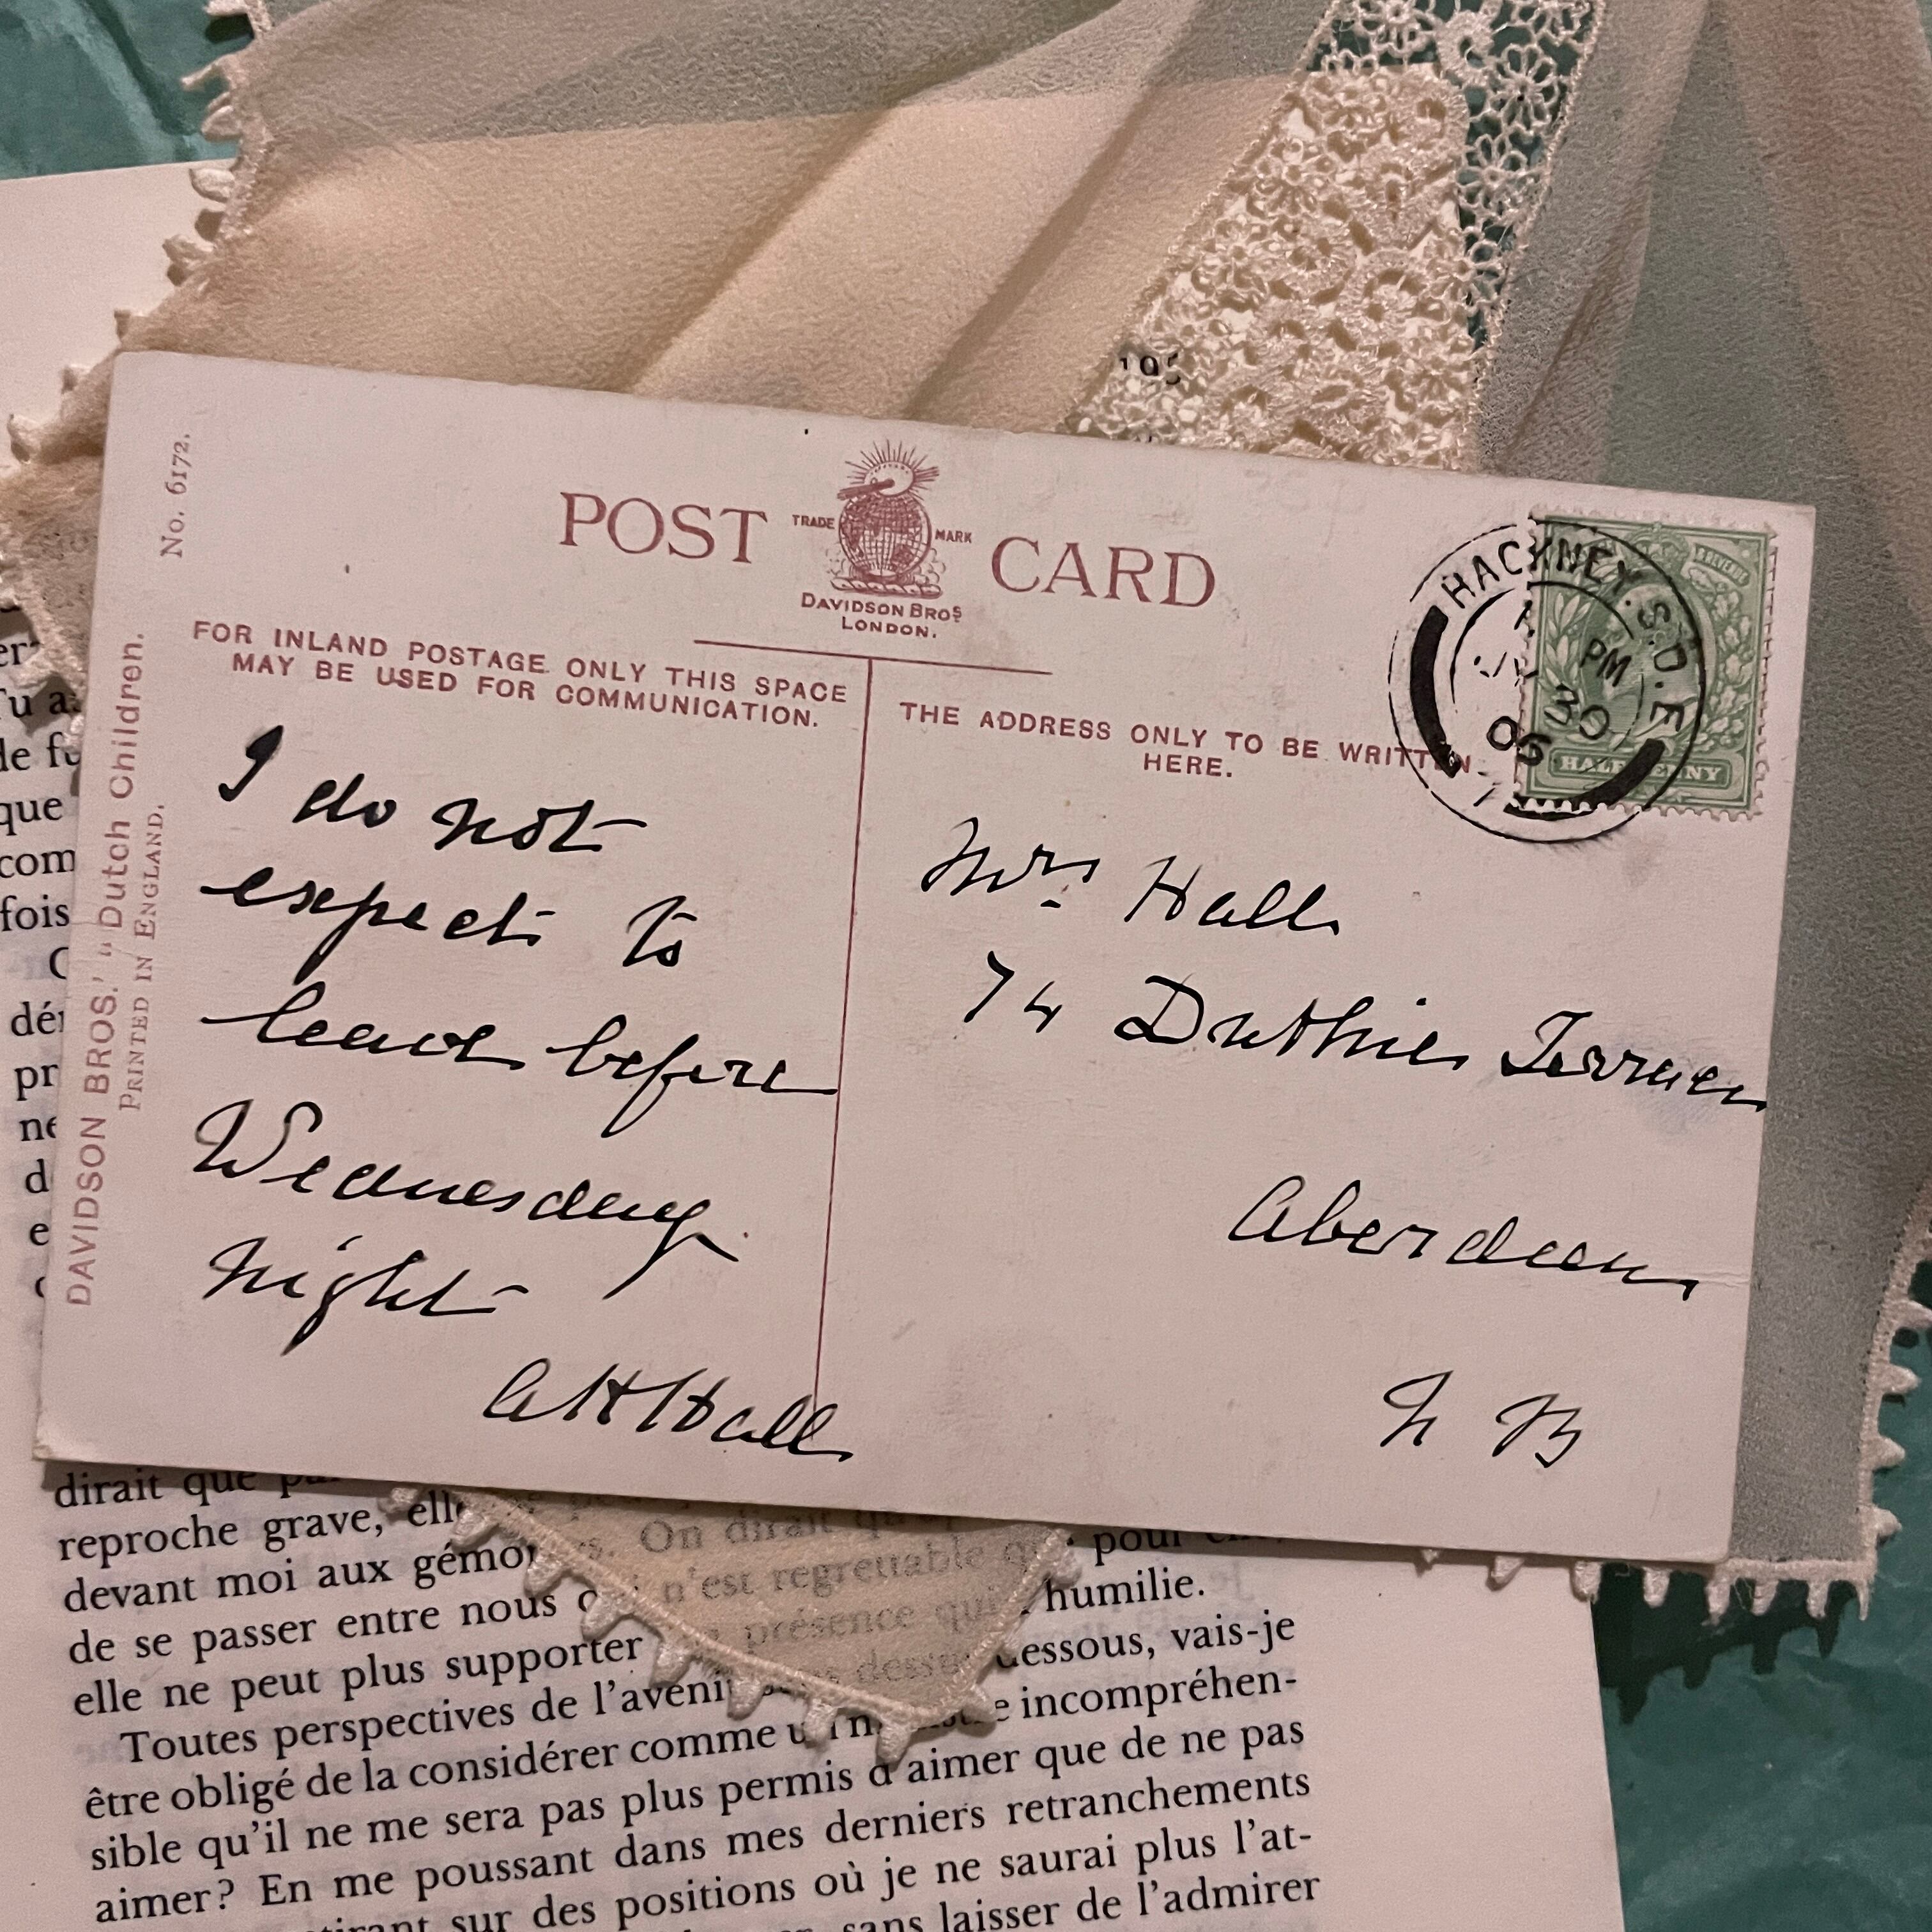 195
No. 6172.
POST CARD
TRADE MARK
DAVIDSON BROS
LONDON.
DAVIDSON BROS.' "Dutch Children.
PRINTED IN ENGLAND.
FOR INLAND POSTAGE ONLY THIS SPACE
MAY BE USED FOR COMMUNICATION.
THE ADDRESS ONLY TO BE WRITTEN
HERE.
HACKNEY. S.O. E
PM
30
06
HALFPENNY
I do not
expect to
leave before
Wednesday
night
A H Hall
Mrs Hall
74 Duthie Terrace
Aberdeen
N B
Tu
de
que
com
fois
pr
ne
d
e
dirait que
reproche grave, elle
On dirait
pour
devant moi aux
n'est regrettable
humilie.
de se passer entre nous
présence qui
elle ne peut plus supporter
dessous, vais-je
Toutes perspectives de l'avenir
incompréhen-
être obligé de la considérer comme un
sible qu'il ne me sera pas plus permis d'aimer que de ne pas
aimer? En me poussant dans mes derniers retranchements
sur des positions où je ne saurai plus l'at-
sans laisser de l'admirer